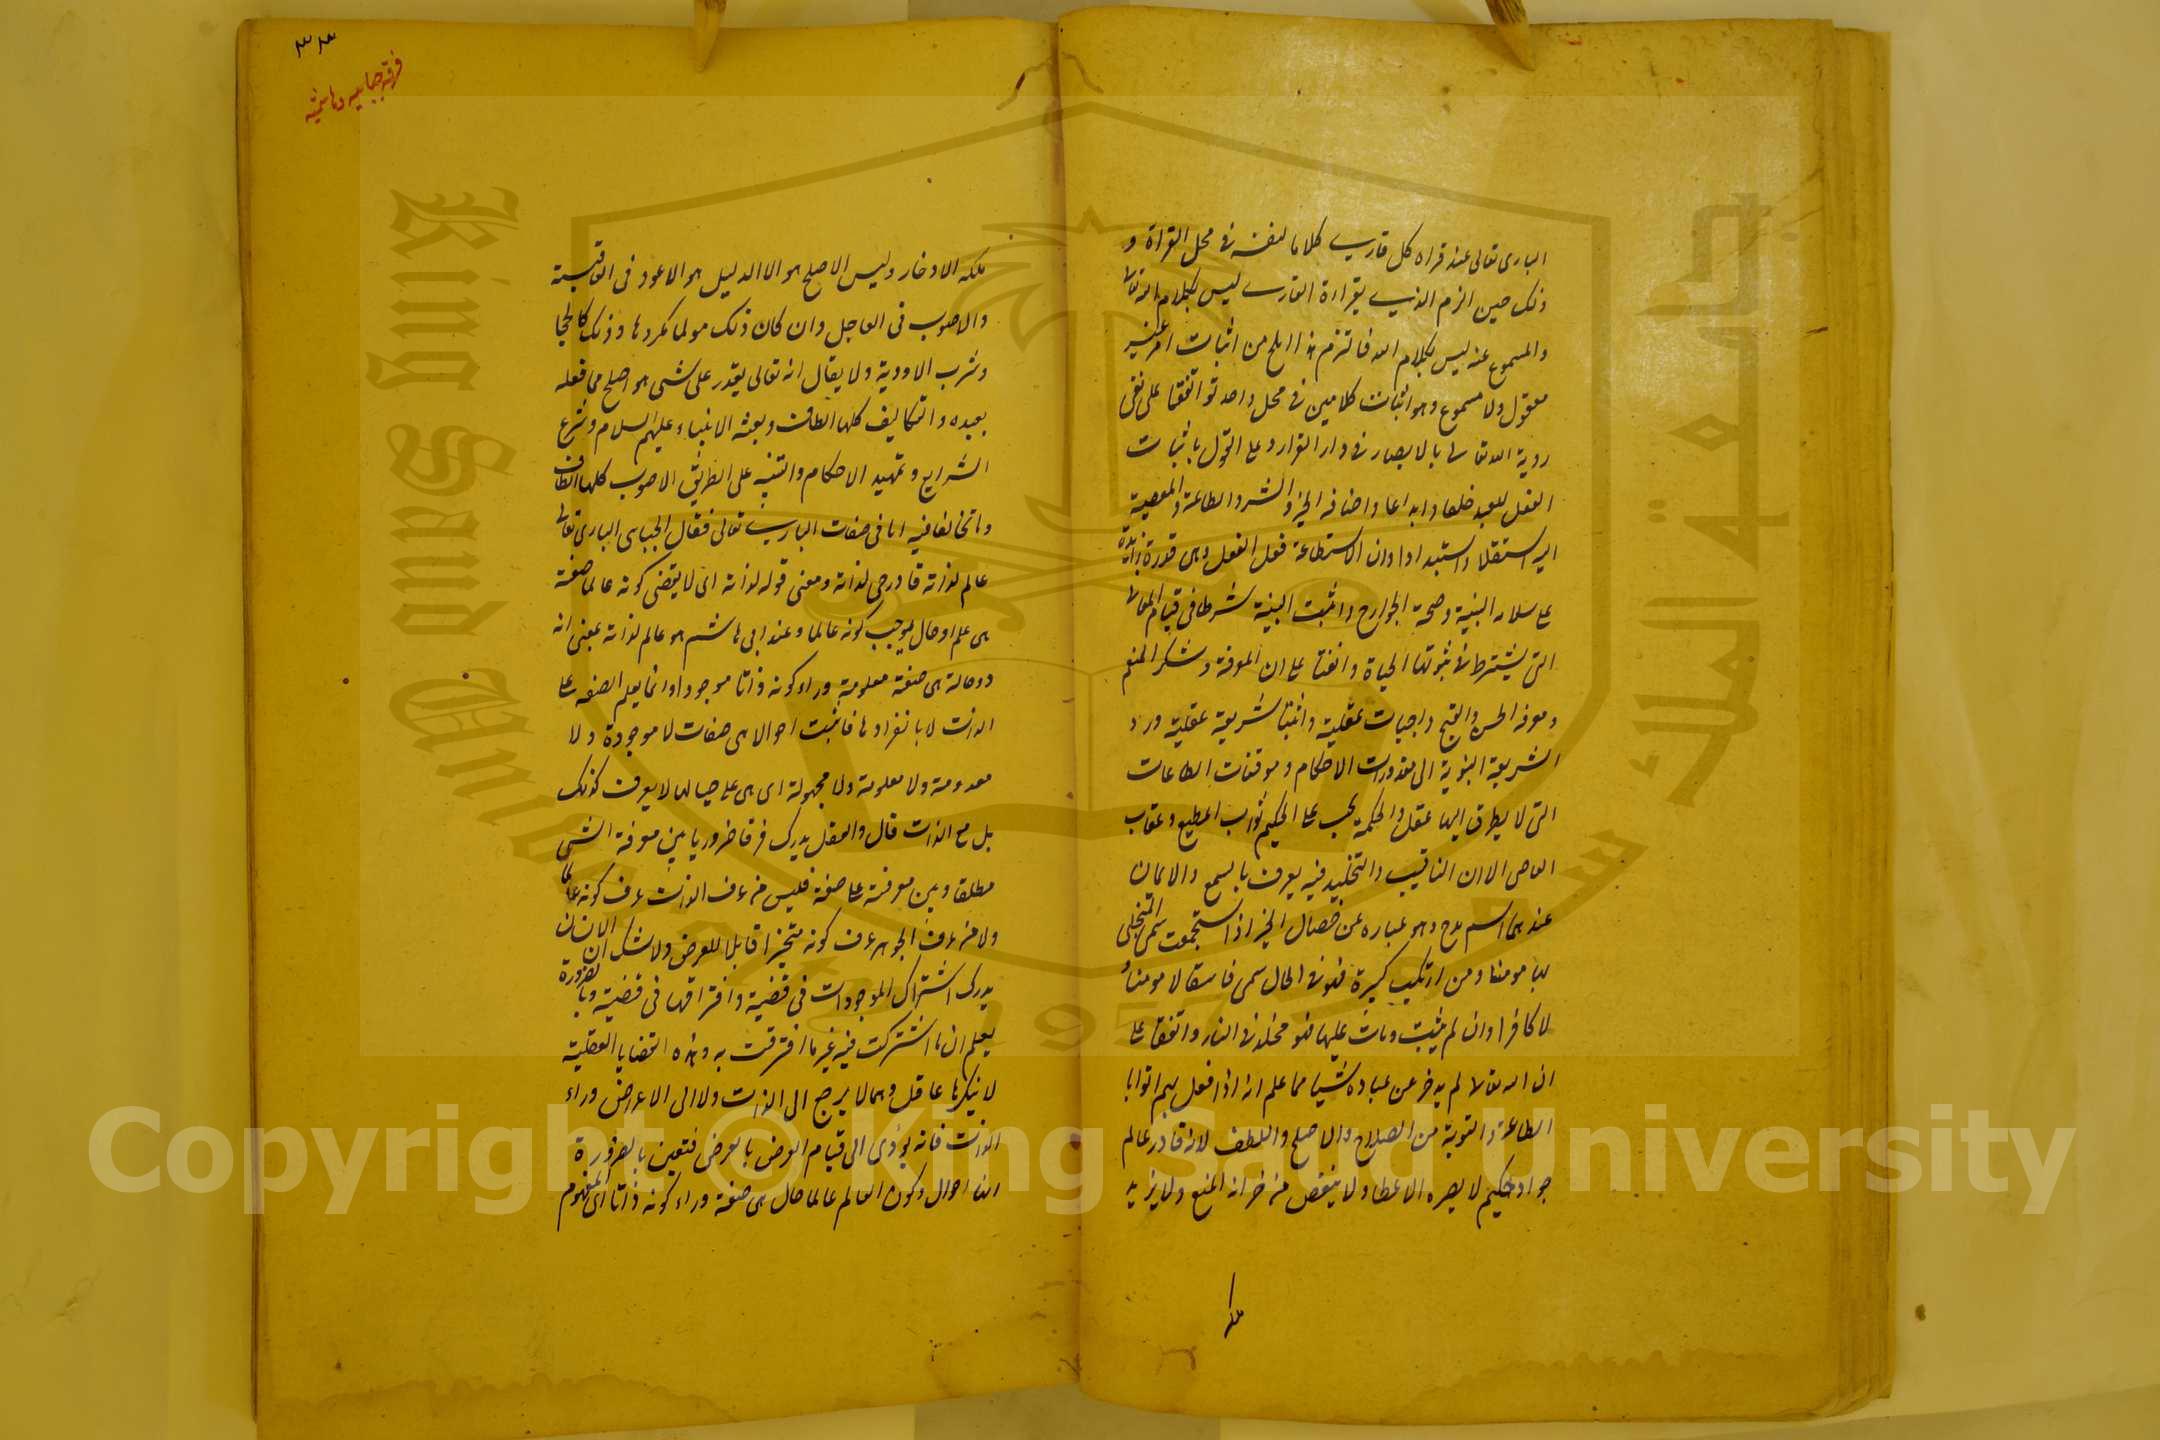 البارى تعالى عند قراه كل قارى كلاما لنفسه فى محل القراة و
ذلك حين الزم الذى يقراه القارى ليس بكلام الله تعالى
والمسموع عنه ليس بكلام الله فالتزم هذا المح من اثبات امر غير
معقول ولا مسموع وهو اثبات كلامين فى محل واحد ثو اتفقا على نفى
روية الله تعالى بالابصار فى دار القرار وعلى القول باثبات
الفعل للعبد خلقا وابداعا واضافه الخير والشر والطاعة والمعصية
اليه استقلالا واستبدادا وان الاستطاعة قبل الفعل وهى قدرة زايدة
على سلامه البنية وصحة الجوارح واثبت البنية شرطا فى قيام المعانى
التى يشترط فى ثبوتها الحياة واتفقا على ان المعرفة وشكر المنعم
ومعرفه الحسن والقبيح واجبات عقلية واثبتا شريعة عقلية ورد
الشريعة النبوية الى مقدورات الاحكام وموقتات الطاعات
التى لا يطرق اليها عقل والحكمة يجب على الحكيم ثواب المطيع وعقاب
العاصى الا ان التاقيت والتخليد فيه يعرف بالسمع والايمان
عندهما اسم مدح وهو عباره عن خصال الخير اذا استجمعت سمى المتحلى
بها مومنا ومن ارتكب كبيرة فهو فى الحال سمى فاسقا لا مومنا و
لا كافرا وان لم يثبت ومات عليها فهو مخلد فى النار واتفقا على
ان الله تعالى لم يدخر عن عباده شيا مما علم انه اذا فعل بهم اتوا با
لطاعة والتوبة من الصلاح والاصلح واللطف لانه قادر عالم
جواد حكيم لا يضره الاعطا ولا ينقص من خزانه المنع ولا يزيد
ملكه
٣٣
فرقه جبايه وهاشميه
ملكه الادخار وليس الاصلح هو الا الدليل هو الاعود فى العاقبة
والاصوب فى العاجل وان كان ذلك مولما مكروها وذلك كالحجا
وشرب الاودية ولا يقال انه تعالى يقدر على شى هو اصلح مما فعله
بعبده والتكاليف كلها الطاف وبعثه الانبياء عليهم السلام وشرع
الشرايع وتمهيد الاحكام والتنبيه على الطريق الاصوب كلها الطاف
وما تخالفا فيه اما فى صفات البارى تعالى فقال الجباى البارى تعالى
عالم لذاته قادر حى لذاته ومعنى قوله لذاته اى لا يقتضى كونه عالما صفة
هى علم او حال يوجب كونه عالما وعند ابى هاشم هو عالم لذاته بمعنى انه
ذو حالة هى صفة معلومة وراء كونه ذاتا موجودا وانما يعلم الصفه على
الذات لا بانفرادها فاثبت احوالا هى صفات لا موجودة ولا
معدومة ولا معلومة ولا مجهولة اى هى على حيالها لا يعرف كذلك
بل مع الذات قال والعقل يدرك فرقا ضروريا بين معرفة الشى
مطلقا وبين معرفته على صفة فليس من عرف الذات عرف كونه عالما
ولا من عرف الجوهر عرف كونه متحيزا قابلا للعرض ولا شك ان الانسان
يدرك اشتراك الموجودات فى قضية وافتراقها فى قضية وبالضرورة
يعلم ان ما اشتركت فيه غير ما افترقت به وهذه القضايا العقلية
لا ينكرها عاقل وهما لا يرجع الى الذات ولا الى الاعراض وراء
الذات فانه يؤدى الى قيام العرض بالعرض فتعين بالضرورة
انها احوال وكون العالم عالما حال هى صفة وراء كونه ذاتا اى المفهوم